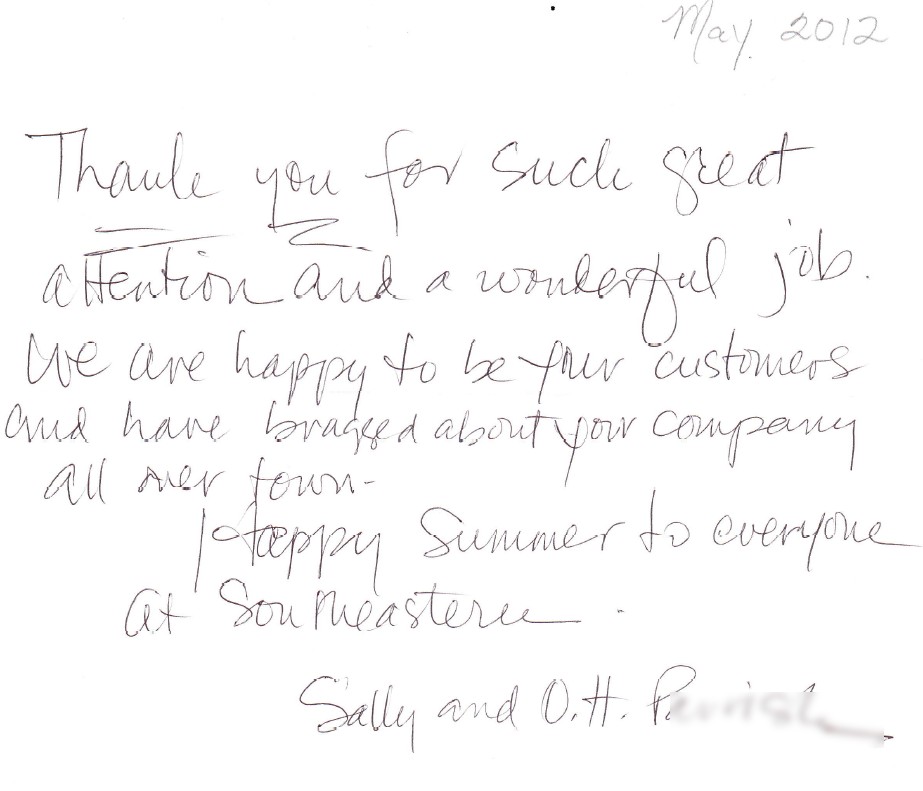 May 2012
Thank you for such great
attention and a wonderful job.
We are happy to be your customers
and have bragged about your company
all over town-
Happy Summer to everyone
at Southeastern.
Sally and O.H. P